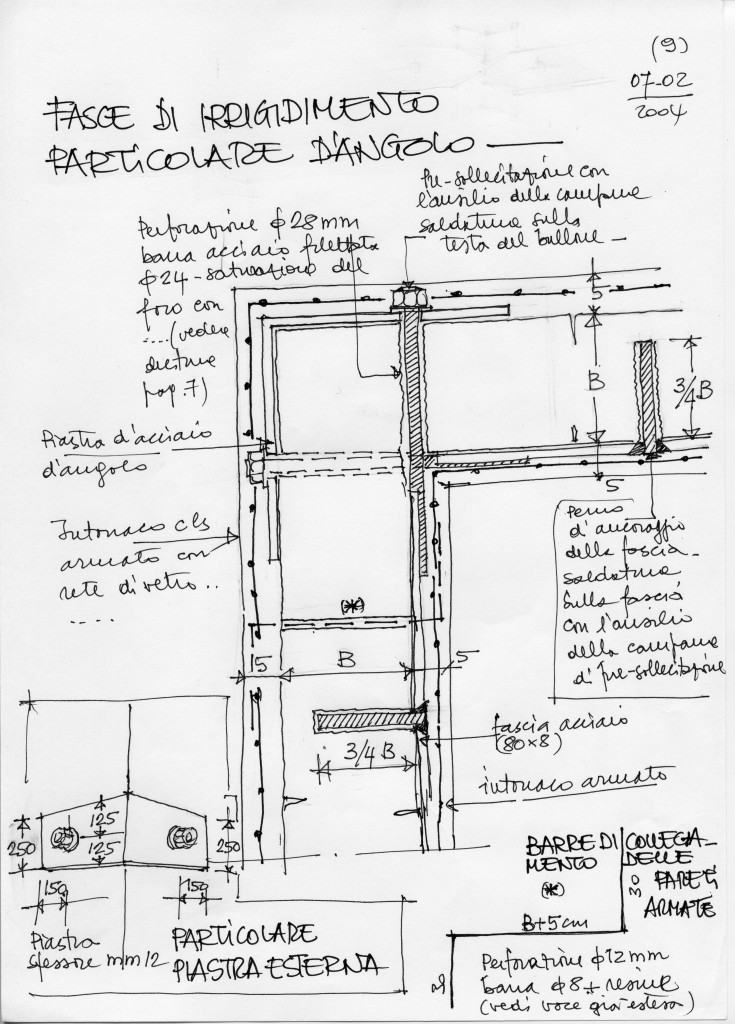 (9)
07-02
2004
FASCE DI IRRIGIDIMENTO
PARTICOLARE D'ANGOLO
Pre-sollecitazione con
l'ausilio della campana
saldatura sulla
testa del bullone
Perforazione ϕ28mm
barra acciaio filettata
ϕ24-saturazione del
foro con
....(vedere
pag.7)
5
B
3/4 B
5
Piastra d'acciaio
d'angolo
Intonaco cls
armato con
rete di vetro..
....
Perno
d'ancoraggio
della fascia
saldatura
sulla fascia
con l'ausilio
della campana
di pre-sollecitazione
(*)
15
B
5
3/4 B
fascia acciaio
(80×8)
intonaco armato
125
125
250
250
150
150
Piastra
spessore mm12
PARTICOLARE
PIASTRA ESTERNA
BARRE DI COLLEGA-
MENTO DELLE
PARETI
ARMATE
(*)
30
B+5cm
Perforazione ϕ12mm
barra ϕ8+resine
(vedi voce già estesa)